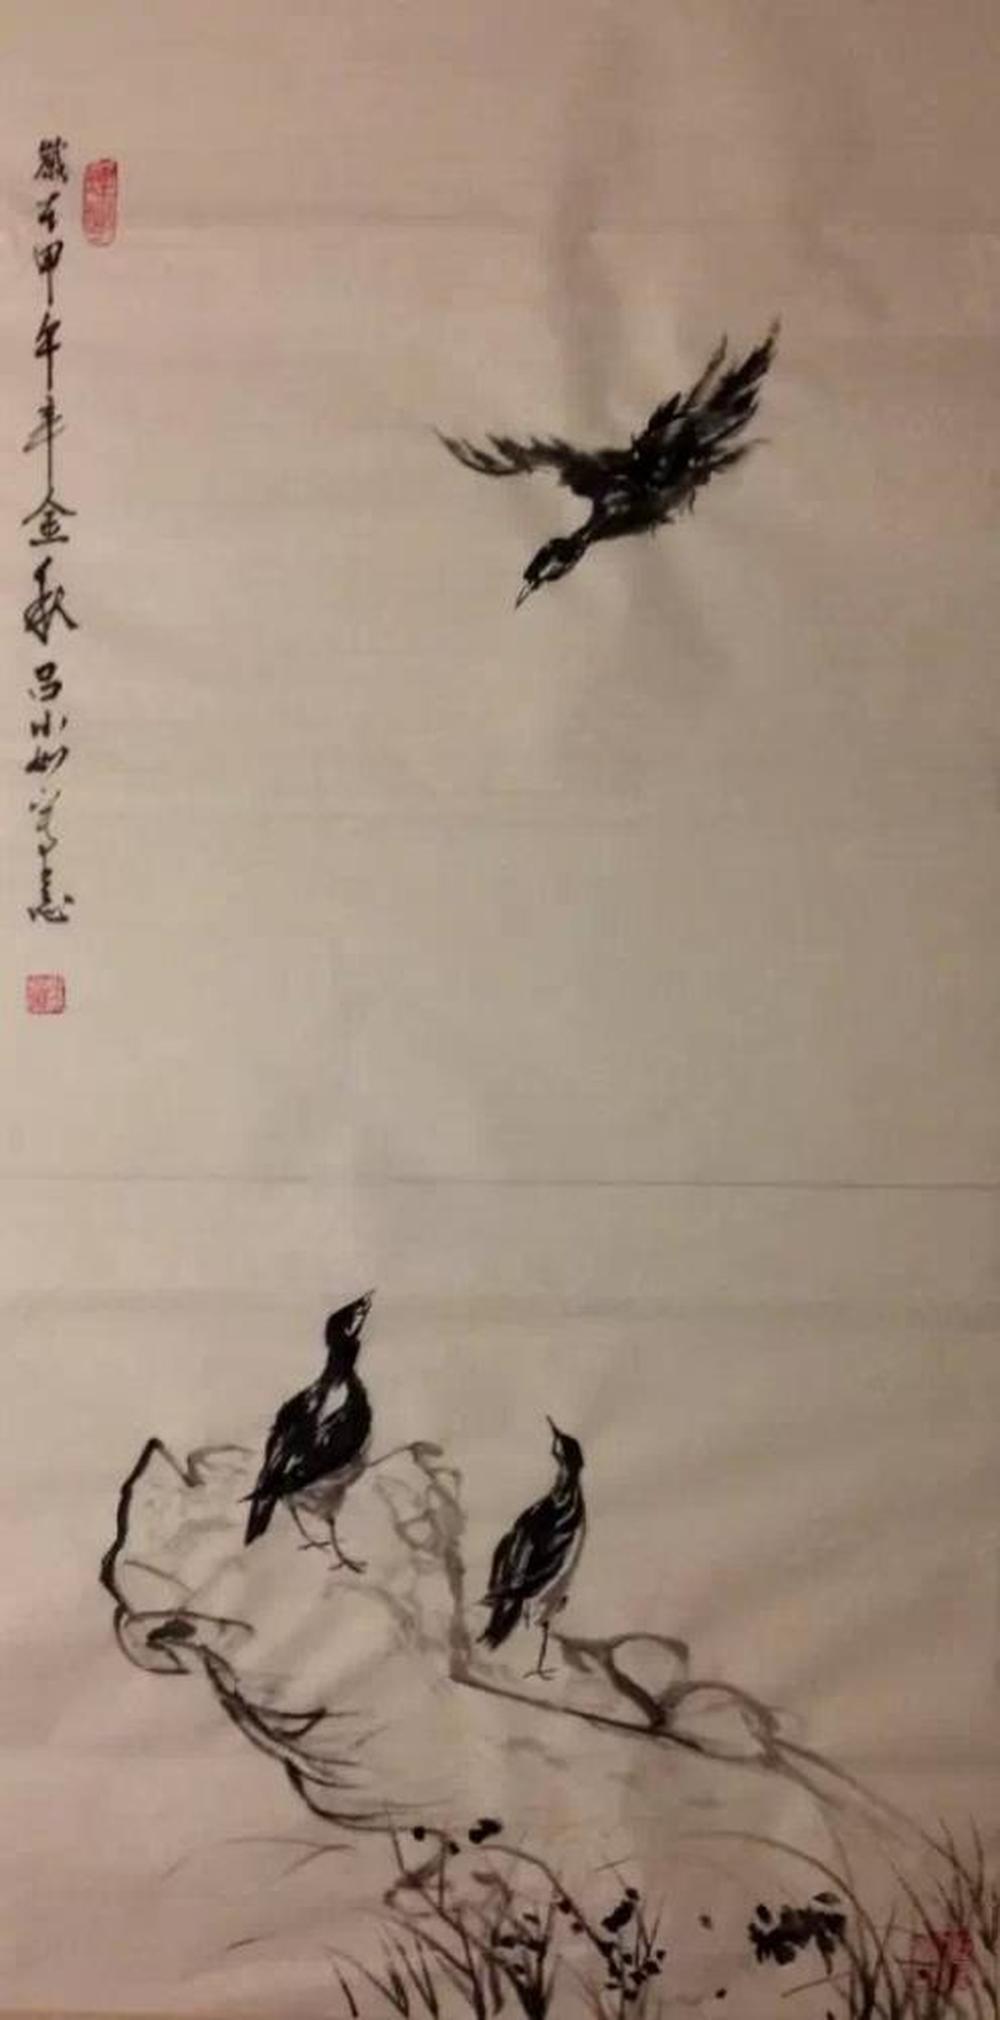 歲在甲午年金秋吕小如写意